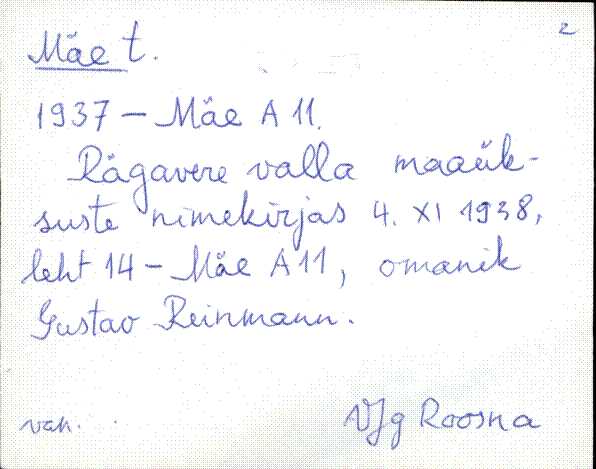 2
Mäe t.
1937 – Mäe A 11.
Rägavere valla maaük-
suste nimekirjas 4. XI 1938,
leht 14 – Mäe A 11, omanik
Gustav Reinmann.
van. VJg Roosna